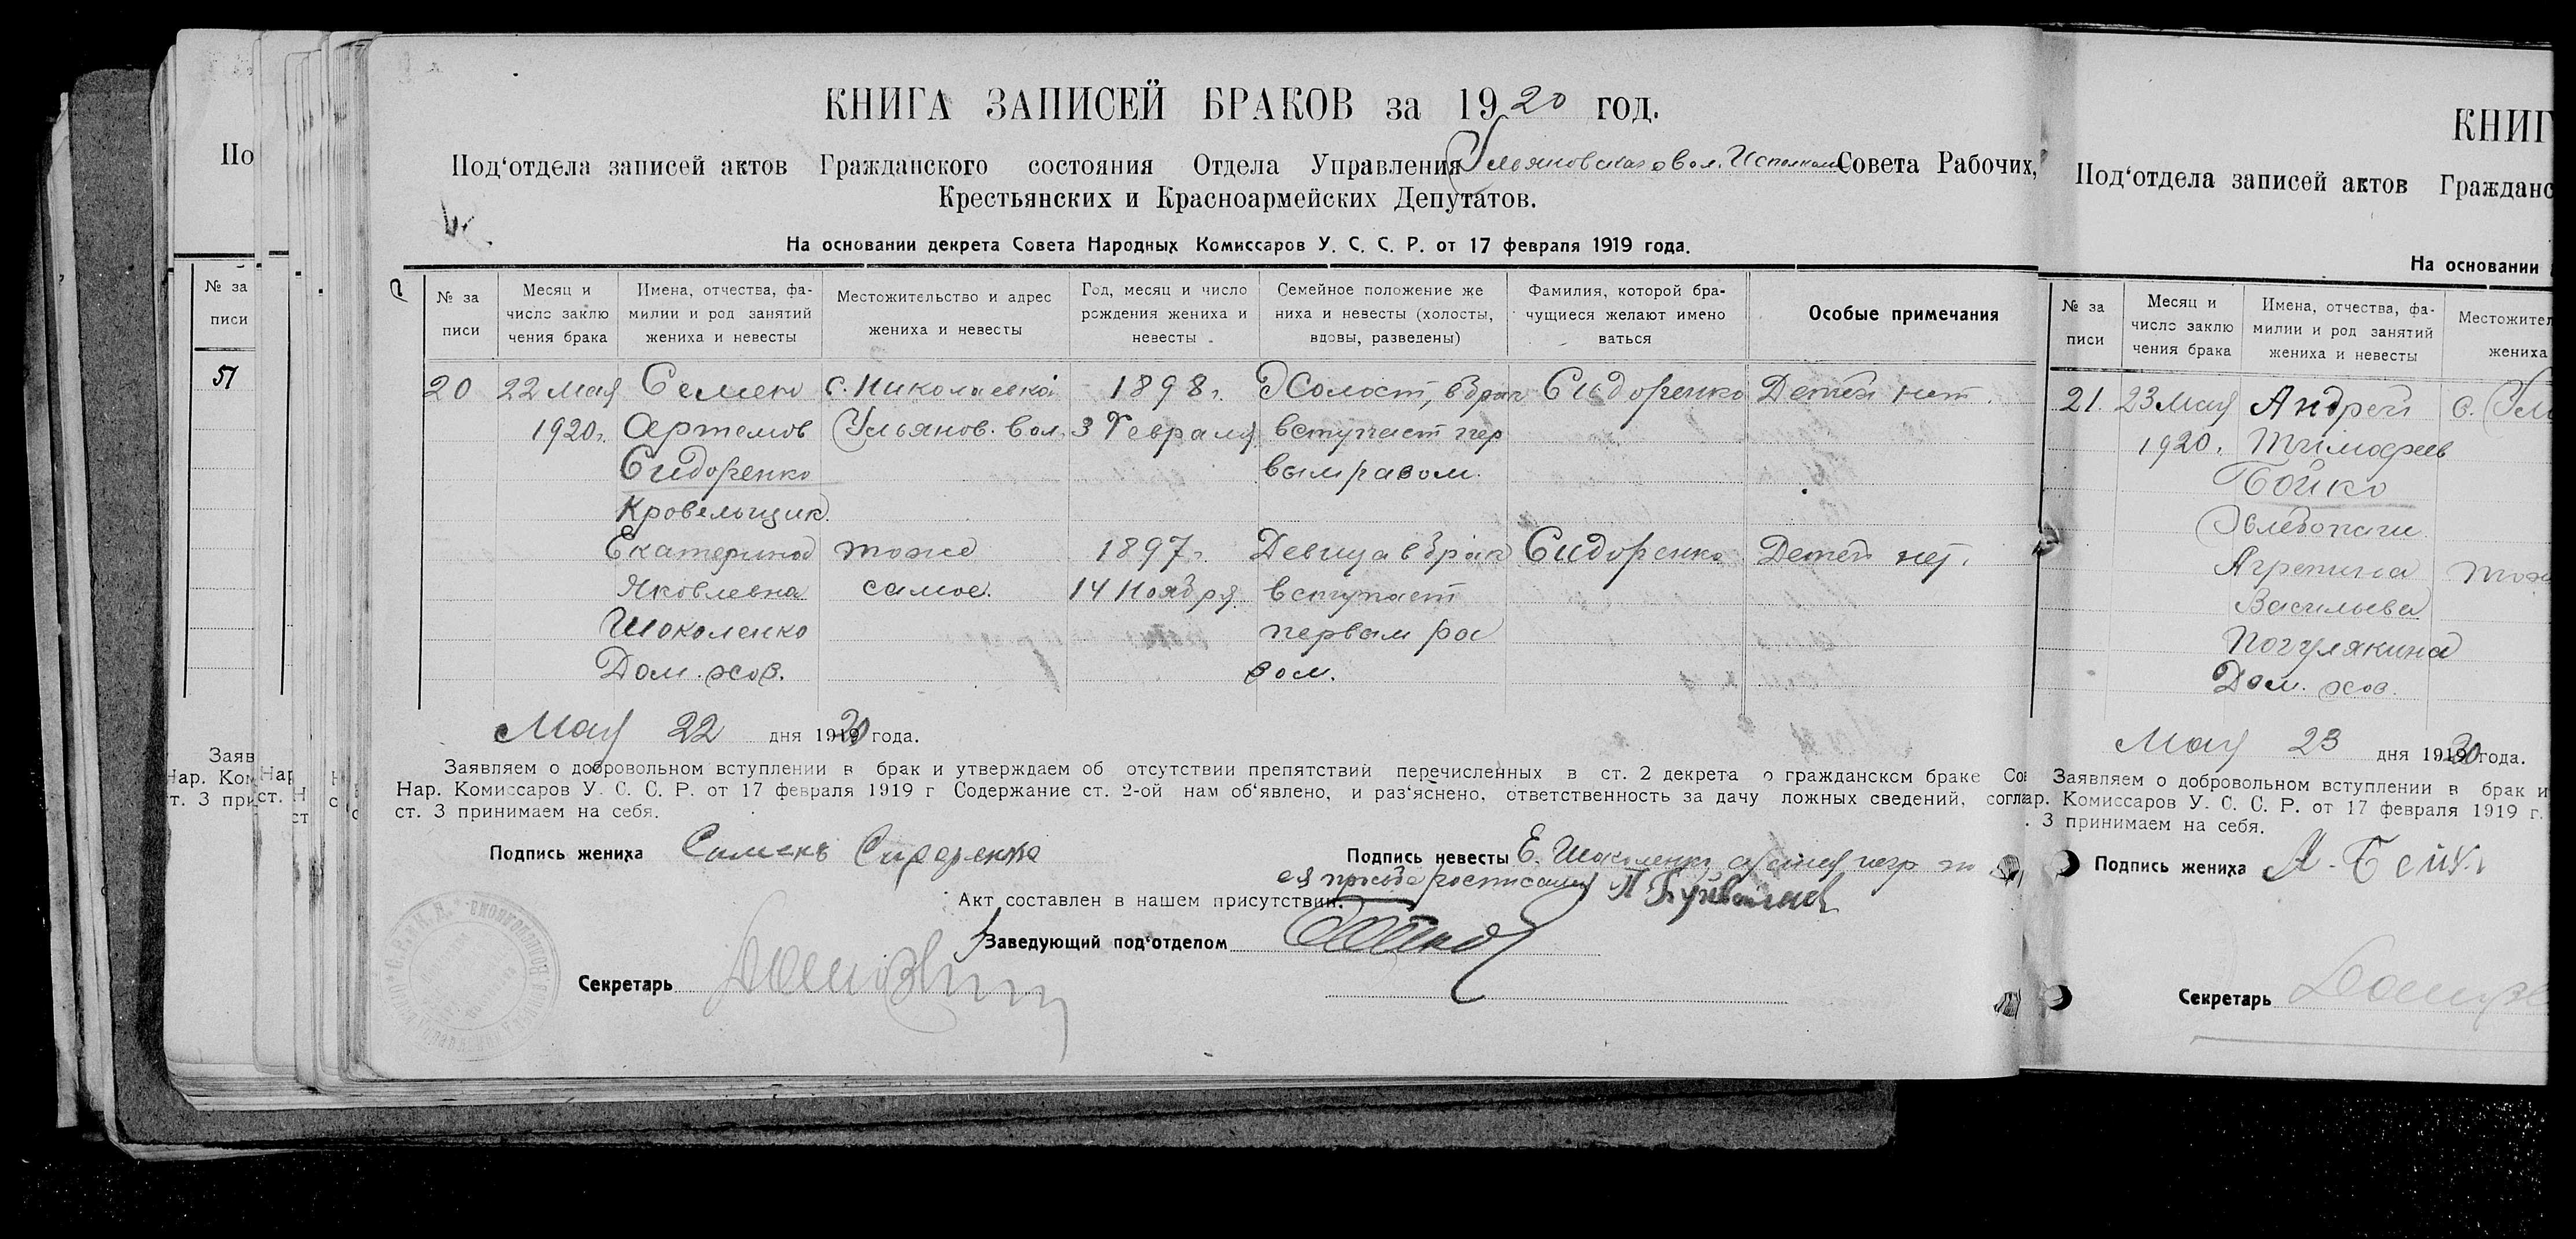 КНИГА ЗАПИСЕЙ БРАКОВ за 1920 год.
Под‘отдела записей актов Гражданского состояния Отдела Управления Ульяновскаго вол. Исполкома Совета Рабочих,
Крестьянских и Красноармейских Депутатов.
На основании декрета Совета Народных Комиссаров У. С. С. Р. от 17 февраля 1919 года.
№ за писи
Месяц и число заклю чения брака
Имена, отчества, фа- милии и род занятий жениха и невесты
Местожительство и адрес жениха и невесты
Год, месяц и число рождения жениха и невесты
Семейное положение же ниха и невесты (холосты, вдовы, разведены)
Фамилия, которой бра- чущиеся желают имено ваться
Особые примечания
20 22 мая Семен с. Николаевка 1898 г. Холост, в брак Сидоренко Детей нет
1920 г. Артемов Ульянов. вол. 3 Февраля вступает пер
Сидоренко вым разом.
Кровельщик.
Екатерина тоже 1897 г. Девица в брак Сидоренко Детей нет.
Яковлевна самое. 14 Ноября вступает
Шоколенко первым ра
Дом. хоз. зом.
Мая 22 дня 1920 года.
Заявляем о добровольном вступлении в брак и утверждаем об отсутствии препятствий перечисленных в ст. 2 декрета о гражданском браке Сов
Нар. Комиссаров У. С. С. Р. от 17 февраля 1919 г Содержание ст. 2-ой нам об‘явлено, и раз‘яснено, ответственность за дачу ложных сведений, согла
ст. 3 принимаем на себя.
Подпись жениха Семенъ Сидоренко
Подпись невесты Е. Шоколенко
ея просьбе росписался
Акт составлен в нашем присутствии.
Заведующий под‘отделом
Секретарь
По
№ за писи
51
Заяв
Нар. Ком
ст. 3 при
Нар
ст.
КНИГ
Под‘отдела записей актов Гражданс
На основании
№ за писи
Месяц и число заклю чения брака
Имена, отчества, фа- милии и род занятий жениха и невесты
Местожител
жениха
21. 23 мая Андрей с. Ул
1920. Тимофеев
Бойко
Хлебопаш
Агрепина тож
Васильева
Погулякина
Дом. хоз.
Мая 23 дня 1920 года.
Заявляем о добровольном вступлении в брак и
ар. Комиссаров У. С. С. Р. от 17 февраля 1919 г.
. 3 принимаем на себя.
Подпись жениха А. Бойко
Секретарь